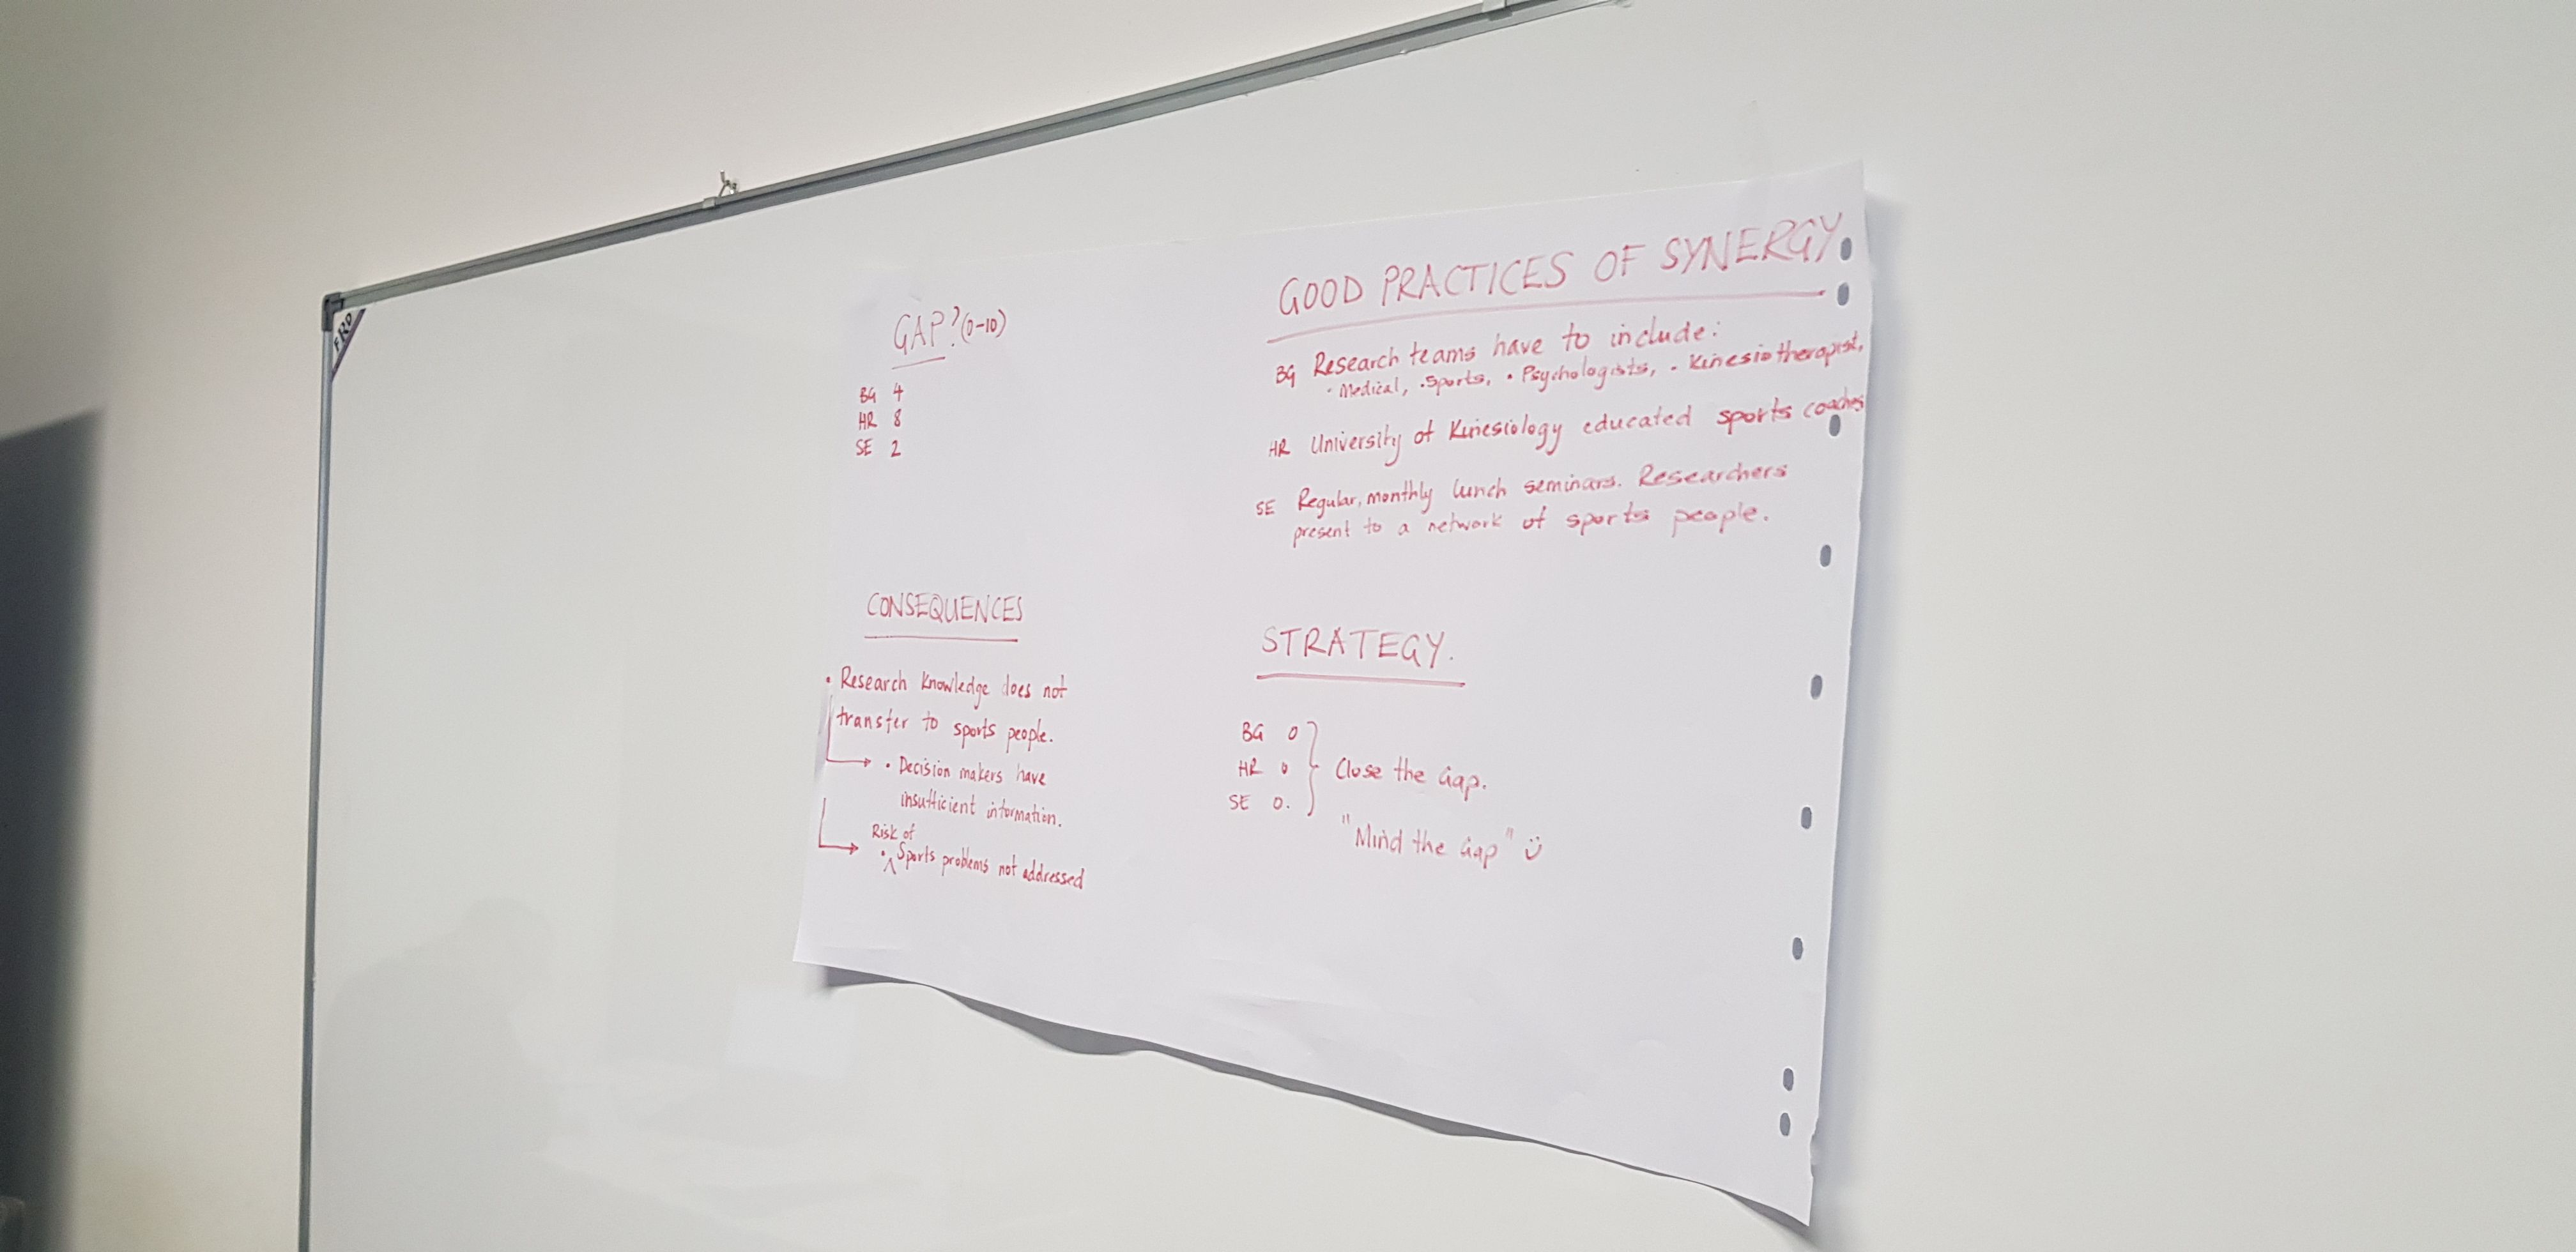 GAP? (0-10)
BG 4
HR 8
SE 2
GOOD PRACTICES OF SYNERGY.
BG Research teams have to include:
· Medical, · Sports, · Psychologists, · Kinesiotherapist,
HR University of Kinesiology educated sports coaches
SE Regular, monthly lunch seminars. Researchers
present to a network of sports people.
CONSEQUENCES
· Research knowledge does not
transfer to sports people.
→ · Decision makers have
insufficient information.
Risk of
→ · ^ Sports problems not addressed
STRATEGY.
BG 0
HR 0 } Close the Gap.
SE 0.
"Mind the Gap" ☺